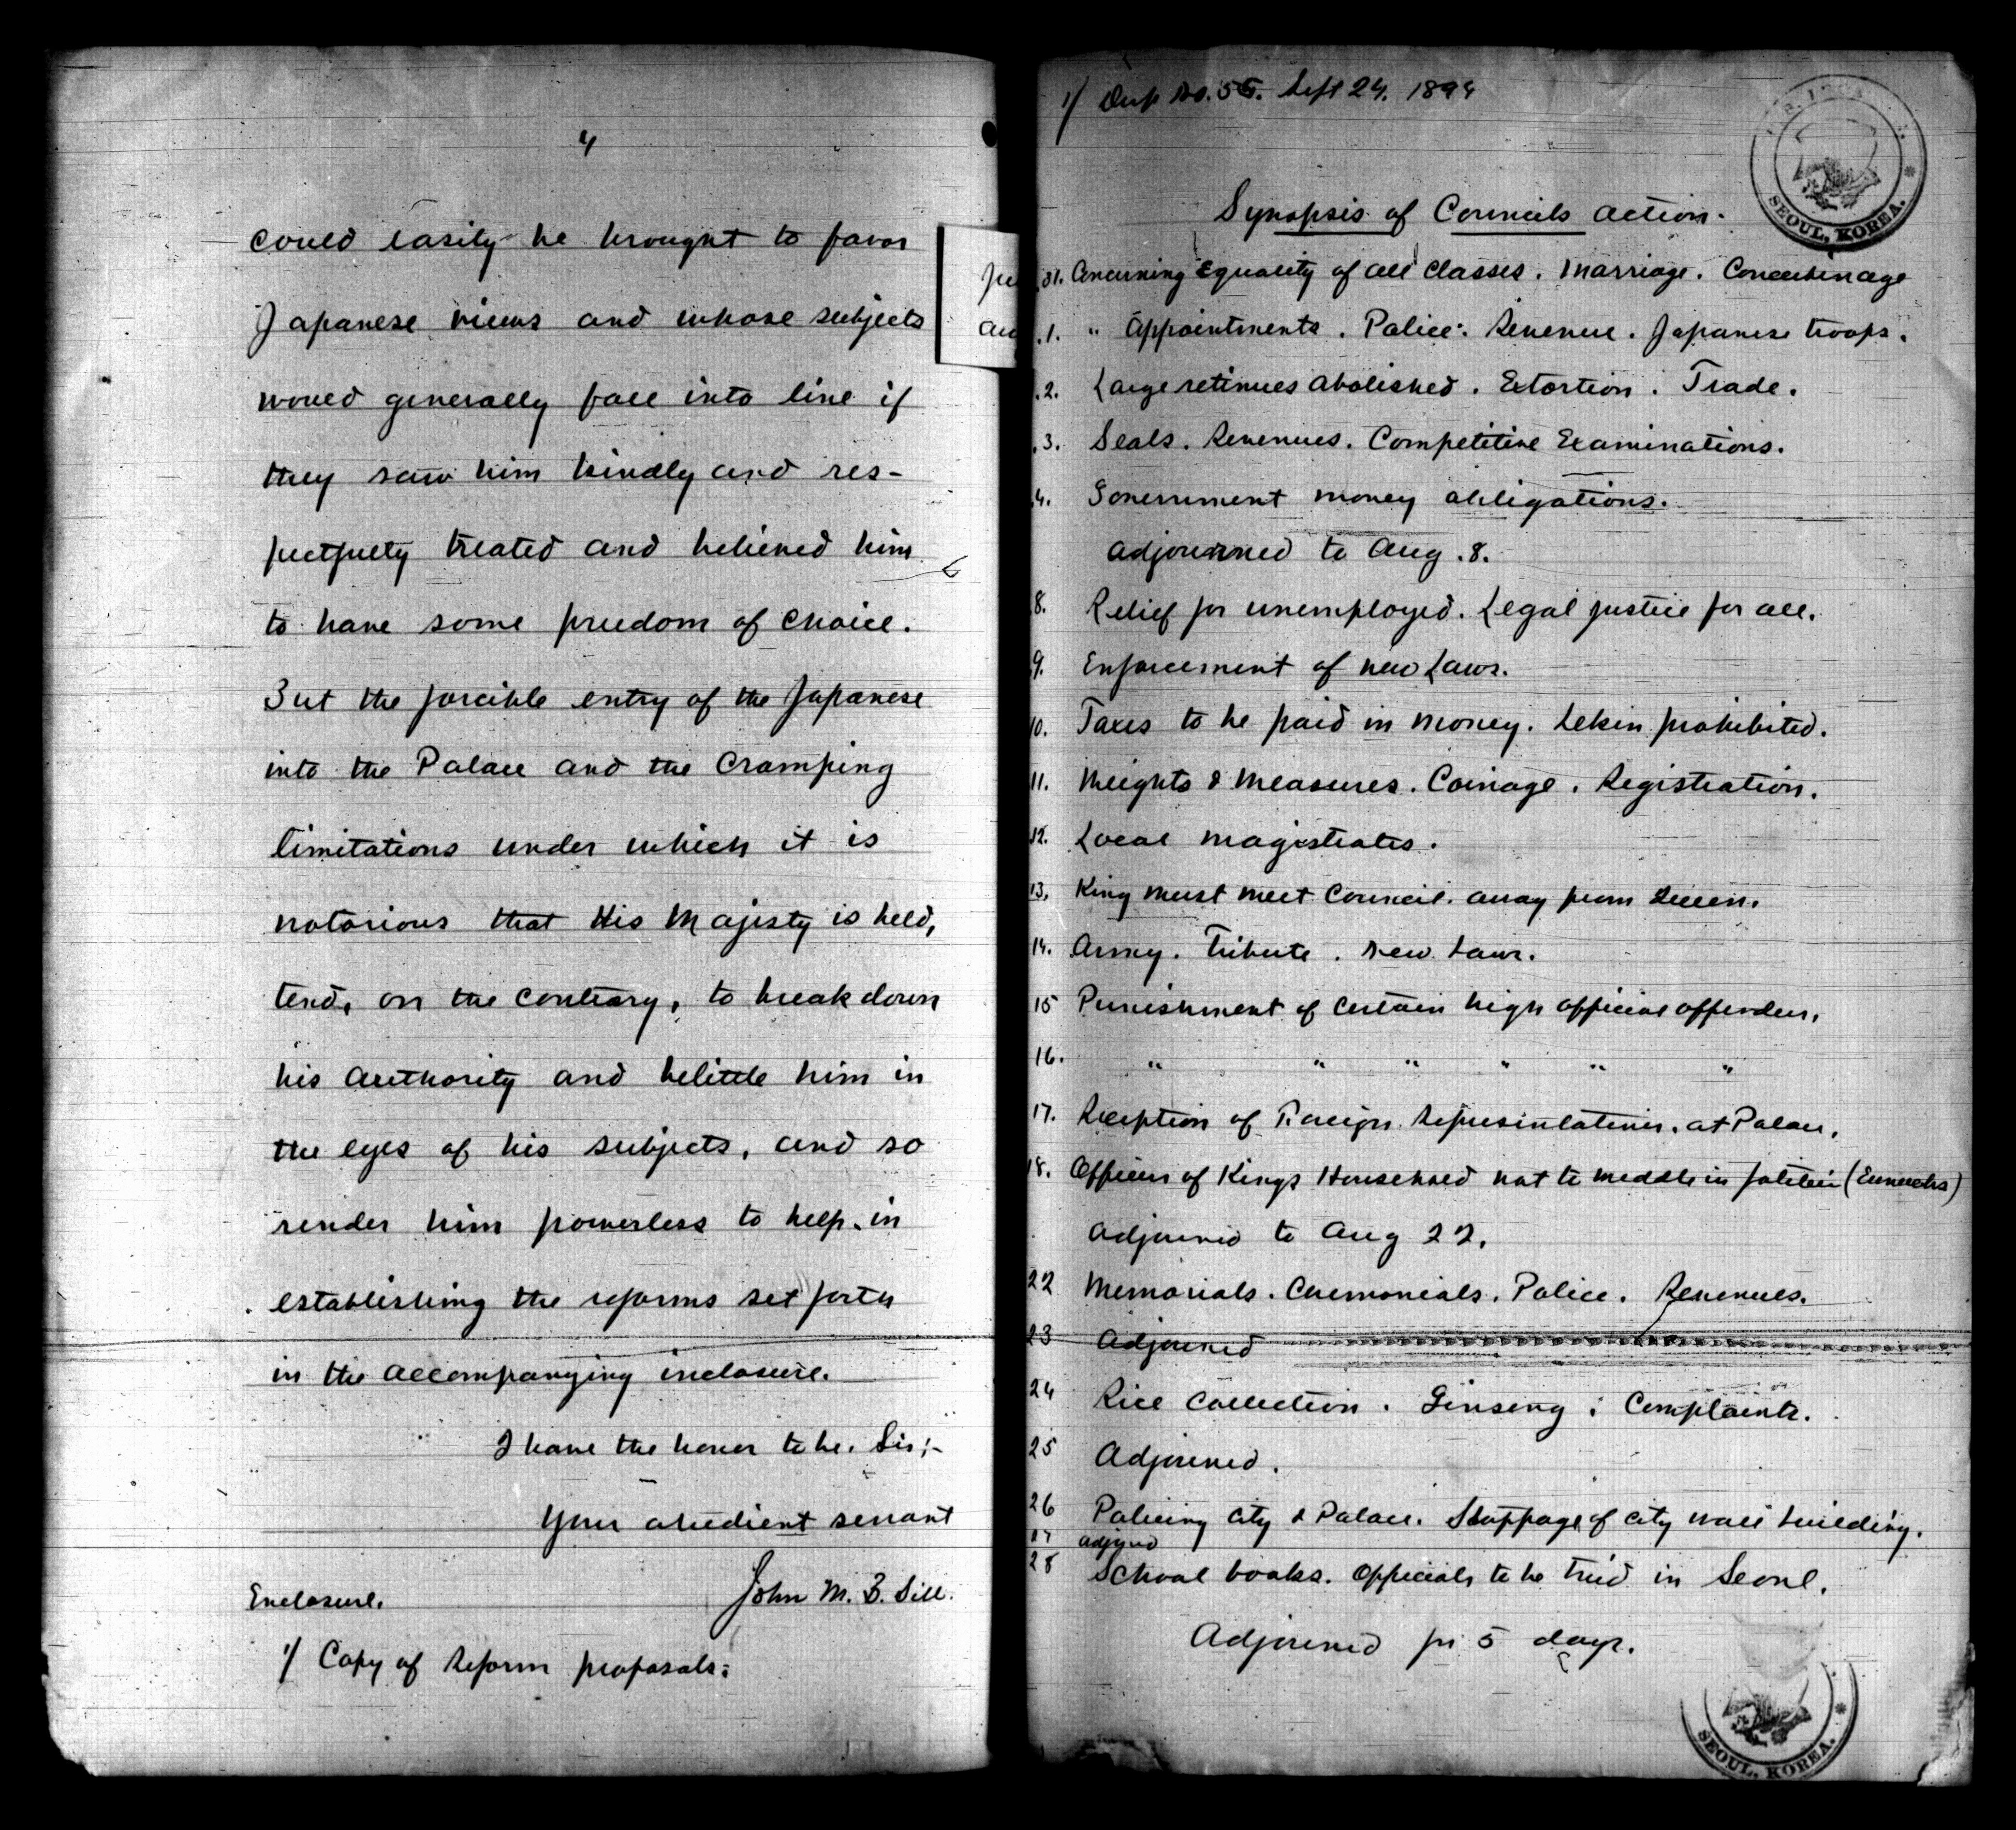 4
could easily be brought to favor
Japanese views and whose subjects
would generally fall into line if
they saw him kindly and res-
pectfully treated and believed him
to have some freedom of choice.
But the forcible entry of the Japanese
into the Palace and the cramping
limitations under which it is
notorious that His Majesty is held,
tend, on the contrary, to break down
his authority and belittle him in
the eyes of his subjects, and so
render him powerless to help in
establishing the reforms set forth
in the accompanying inclosure.
I have the honor to be, Sir;-
Your obedient servant
John M. B. Sill.
Enclosure.
1/ Copy of Reform proposals.
1/ Dup No. 55. Sept 24. 1894
SEOUL, KOREA.
Synopsis of Councils action.
31. Concerning Equality of all classes. Marriage. Concubinage
1. " Appointments. Police. Revenue. Japanese troops.
2. Large retinues abolished. Extortion. Trade.
3. Seals. Revenues. Competitive Examinations.
4. Government money obligations.
adjourned to Aug. 8.
8. Relief for unemployed. Legal justice for all.
9. Enforcement of new Laws.
10. Taxes to be paid in money. Lekin prohibited.
11. Weights & Measures. Coinage. Registration.
12. Local magistrates.
13. King must meet Council. away from Queen.
14. Army. Tribute. New Laws.
15 Punishment of certain high official offenders.
16. " " " " " "
17. Reception of Foreign Representatives. at Palace.
18. Officers of Kings Household not to meddle in politics (Eunuchs)
adjourned to Aug 22.
22 Memorials. Ceremonials. Police. Revenues.
23 Adjourned
24 Rice Collection. Ginseng; Complaints.
25 Adjourned.
26 Policing city & Palace. Stoppage of city wall building.
27 adjrnd
28 School books. Officials to be tried in Seoul.
Adjourned for 5 days.
SEOUL, KOREA.